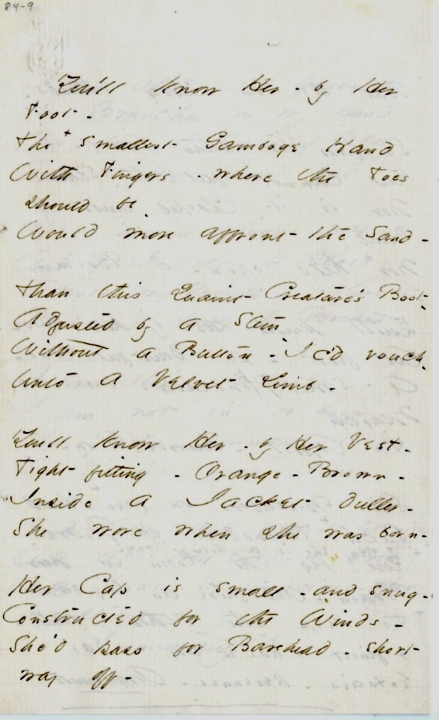 84-9
You'll know Her - by Her
Foot -
The + smallest Gamboge Hand
With Fingers - where the Toes
should be -
Would more affront - the Sand -
Than this Quaint Creature's Boot -
Adjusted by a Stem -
Without a Button - I c'd vouch -
Unto a Velvet Limb -
You'll know Her - by Her Vest -
Tight fitting - Orange - Brown -
Inside a Jacket duller -
She wore when she was born -
Her Cap is small - and snug -
Constructed for the Winds -
She'd pass for Barehead - short
way off -